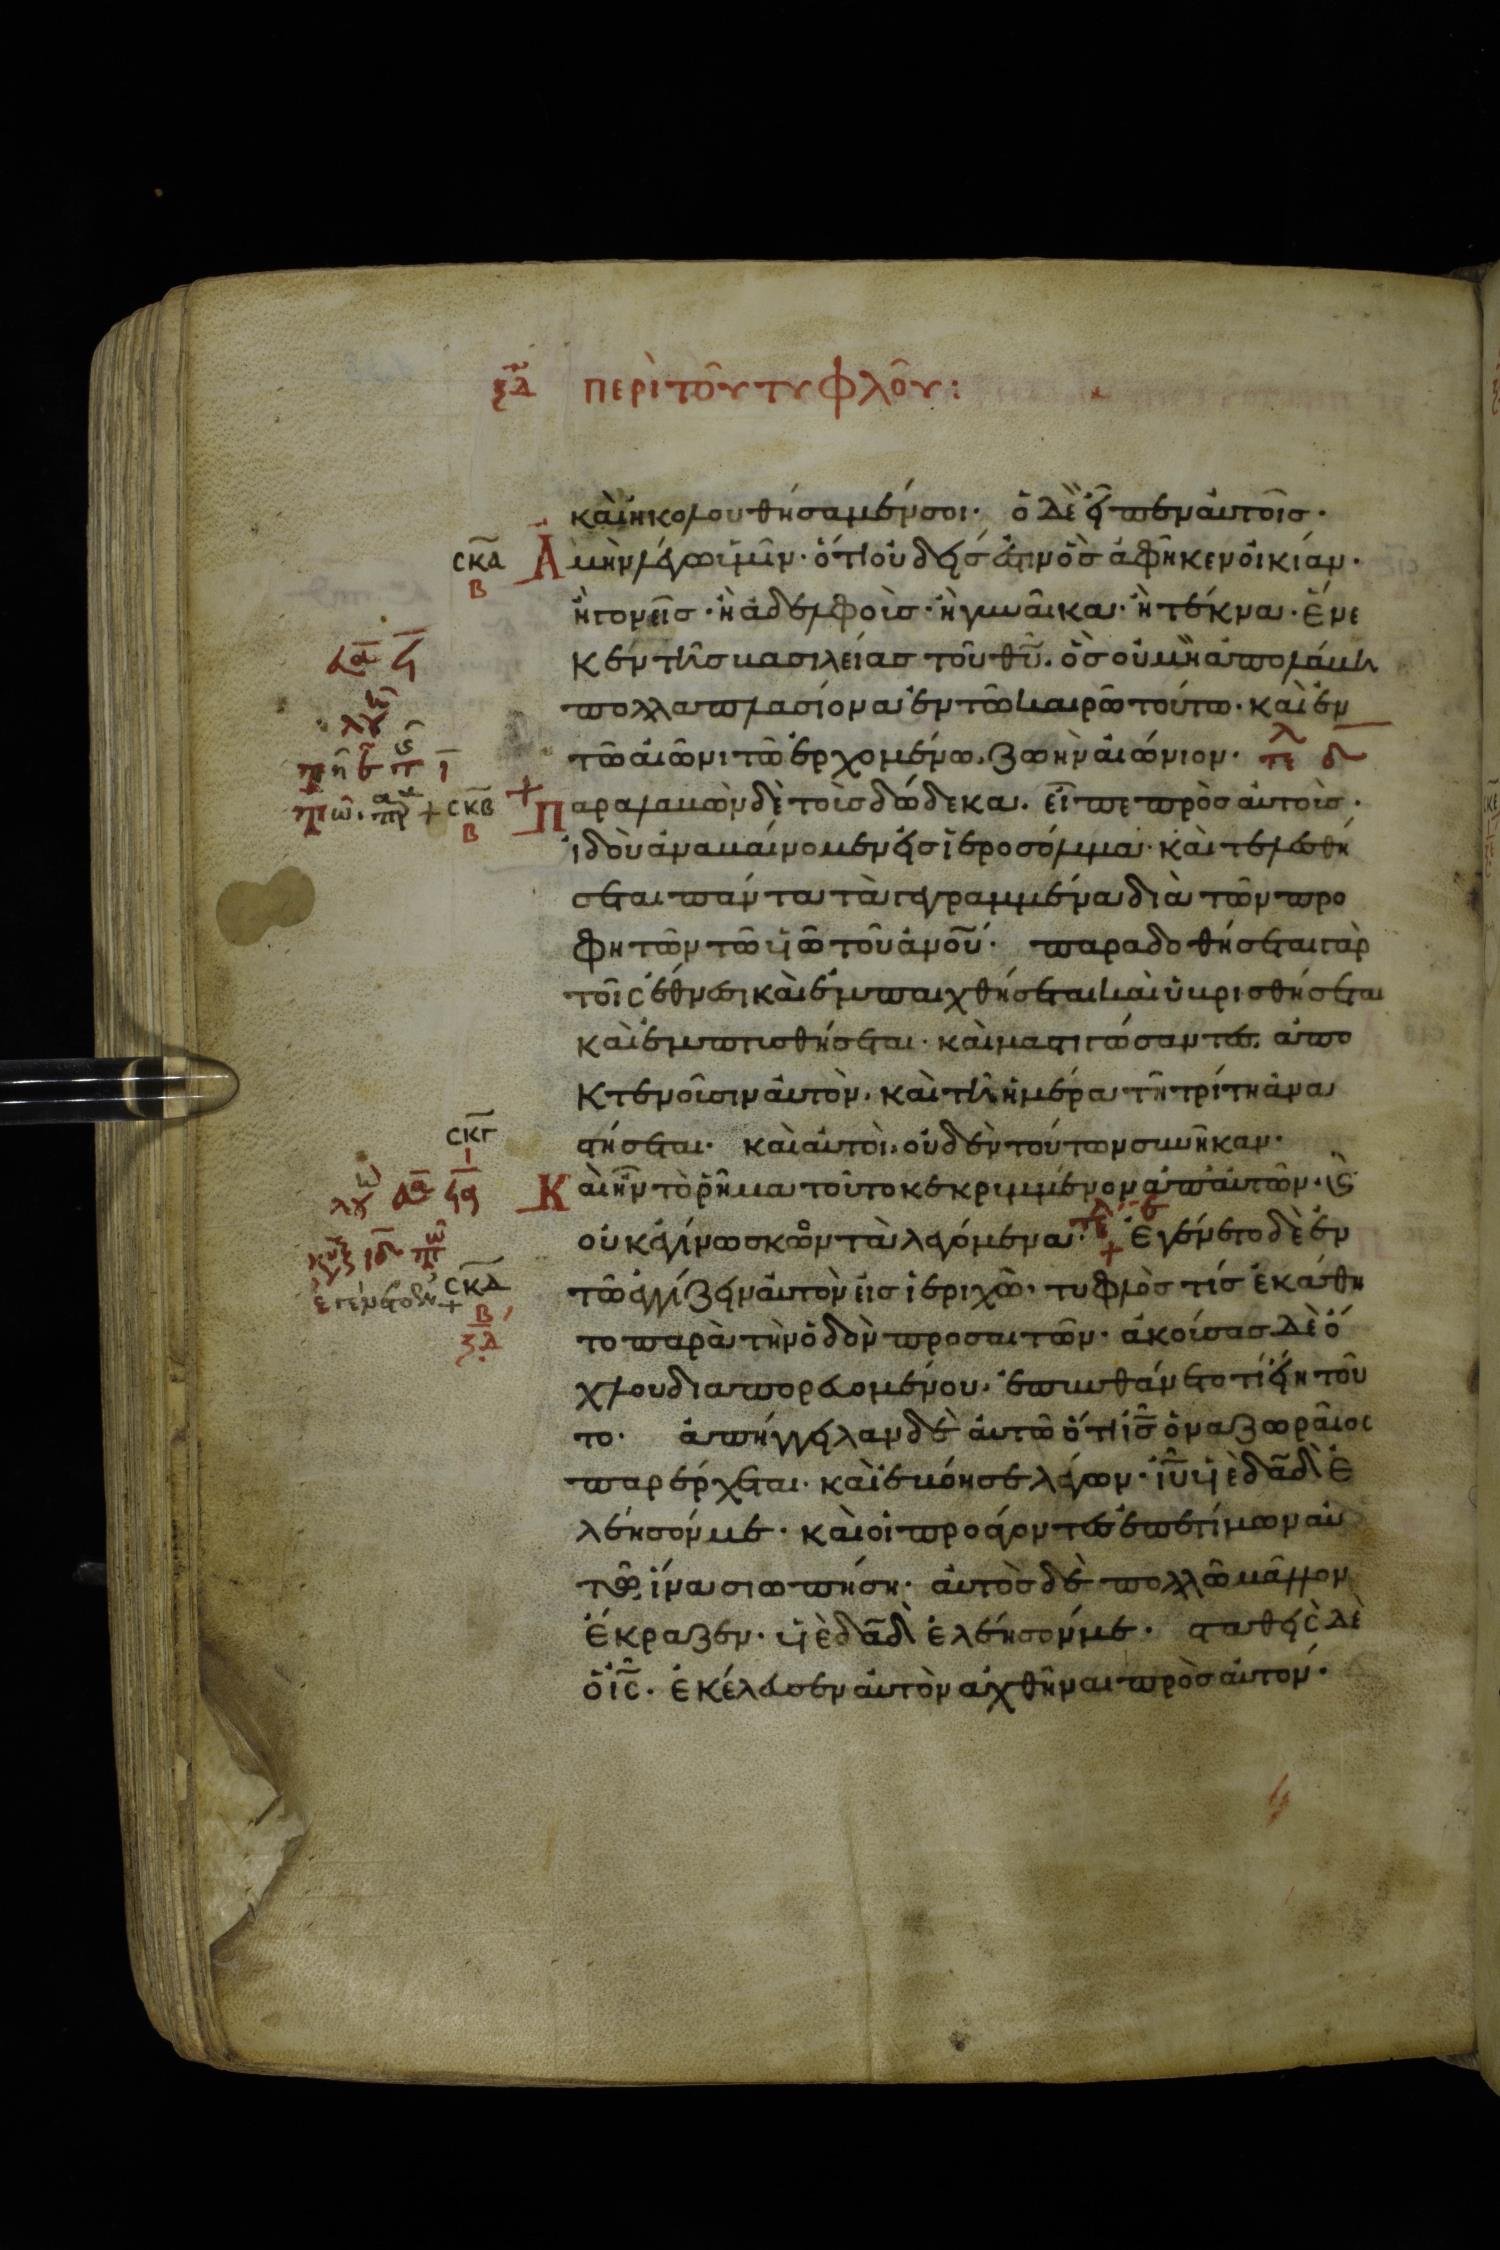 ξδ περὶ τοῦ τυφλοῦ:
καὶ ἠκολουθήσαμέν σοι· ὁ δὲ εἶπεν αὐτοῖσ·
σκα Ἀμὴν λέγω ὑμῖν· ὅτι οὐδείσ ἐστιν ὃσ ἀφῆκεν οἰκίαν·
β
ἢ γονεῖσ· ἢ ἀδελφοὺσ· ἢ γυναῖκα· ἢ τέκνα· ἕνε
κεν τῆσ βασιλείασ τοῦ θῦ. ὃσ οὐ μὴ ἀπολάβη
πολλαπλασίονα ἐν τῶ καιρῶ τούτω· καὶ ἐν
τῶ αἰῶνι τῶ ἐρχομένω, ζωὴν αἰώνιον·
σκβ Παραλαβὼν δὲ τοὺσ δώδεκα. εἶπε πρὸσ αὐτοὺσ·
β
ἰδοὺ ἀναβαίνομεν εἰσ ἱεροσόλυμα· καὶ τελεσθή
σεται πάντα τὰ γεγραμμένα διὰ τῶν προ
φητῶν τῶ υἱῶ τοῦ ἀνοῦ· παραδοθήσεται γὰρ
τοῖς ἔθνεσι καὶ ἐμπαιχθήσεται καὶ ὑβρισθήσεται
καὶ ἐμπτυσθήσεται· καὶ μαστιγώσαντεσ, ἀπο
κτενοῦσιν αὐτὸν, καὶ τῆ ἡμέρα τῆ τρίτη ἀνα
στήσεται· καὶ αὐτοὶ, οὐδὲν τούτων συνῆκαν·
σκγ
ι
Καὶ ἦν τὸ ῥῆμα τοῦτο κεκρυμμένον ἀπ' αὐτῶν· καὶ
οὐκ ἐγίνωσκον τὰ λεγόμενα· + Ἐγένετο δὲ ἐν
σκδ
τῶ ἐγγίζειν αὐτὸν εἰσ ἱεριχὼ· τυφλὸσ τίσ ἐκάθη
β
ξδ
το παρὰ τὴν ὁδὸν προσαιτῶν· ἀκούσασ δὲ ὄ
χλου διαπορευομένου, ἐπυνθάνετο τί εἴη τοῦ
το· ἀπήγγειλαν δὲ αὐτῶ ὅτι ισ ὁ ναζωραῖος
παρέρχεται· καὶ ἐβόησε λέγων· ιυ υἱὲ δαδ ἐ
λέησόν με· καὶ οἱ προάγοντεσ ἐπετίμων αὐ
τῶ, ἵνα σιωπήση· αὐτὸσ δὲ πολλῶ μᾶλλον
ἔκραζεν· υἱὲ δαδ ἐλέησόν με· σταθεὶς δὲ
ὁ ις· ἐκέλευσεν αὐτὸν ἀχθῆναι πρὸσ αὐτόν·